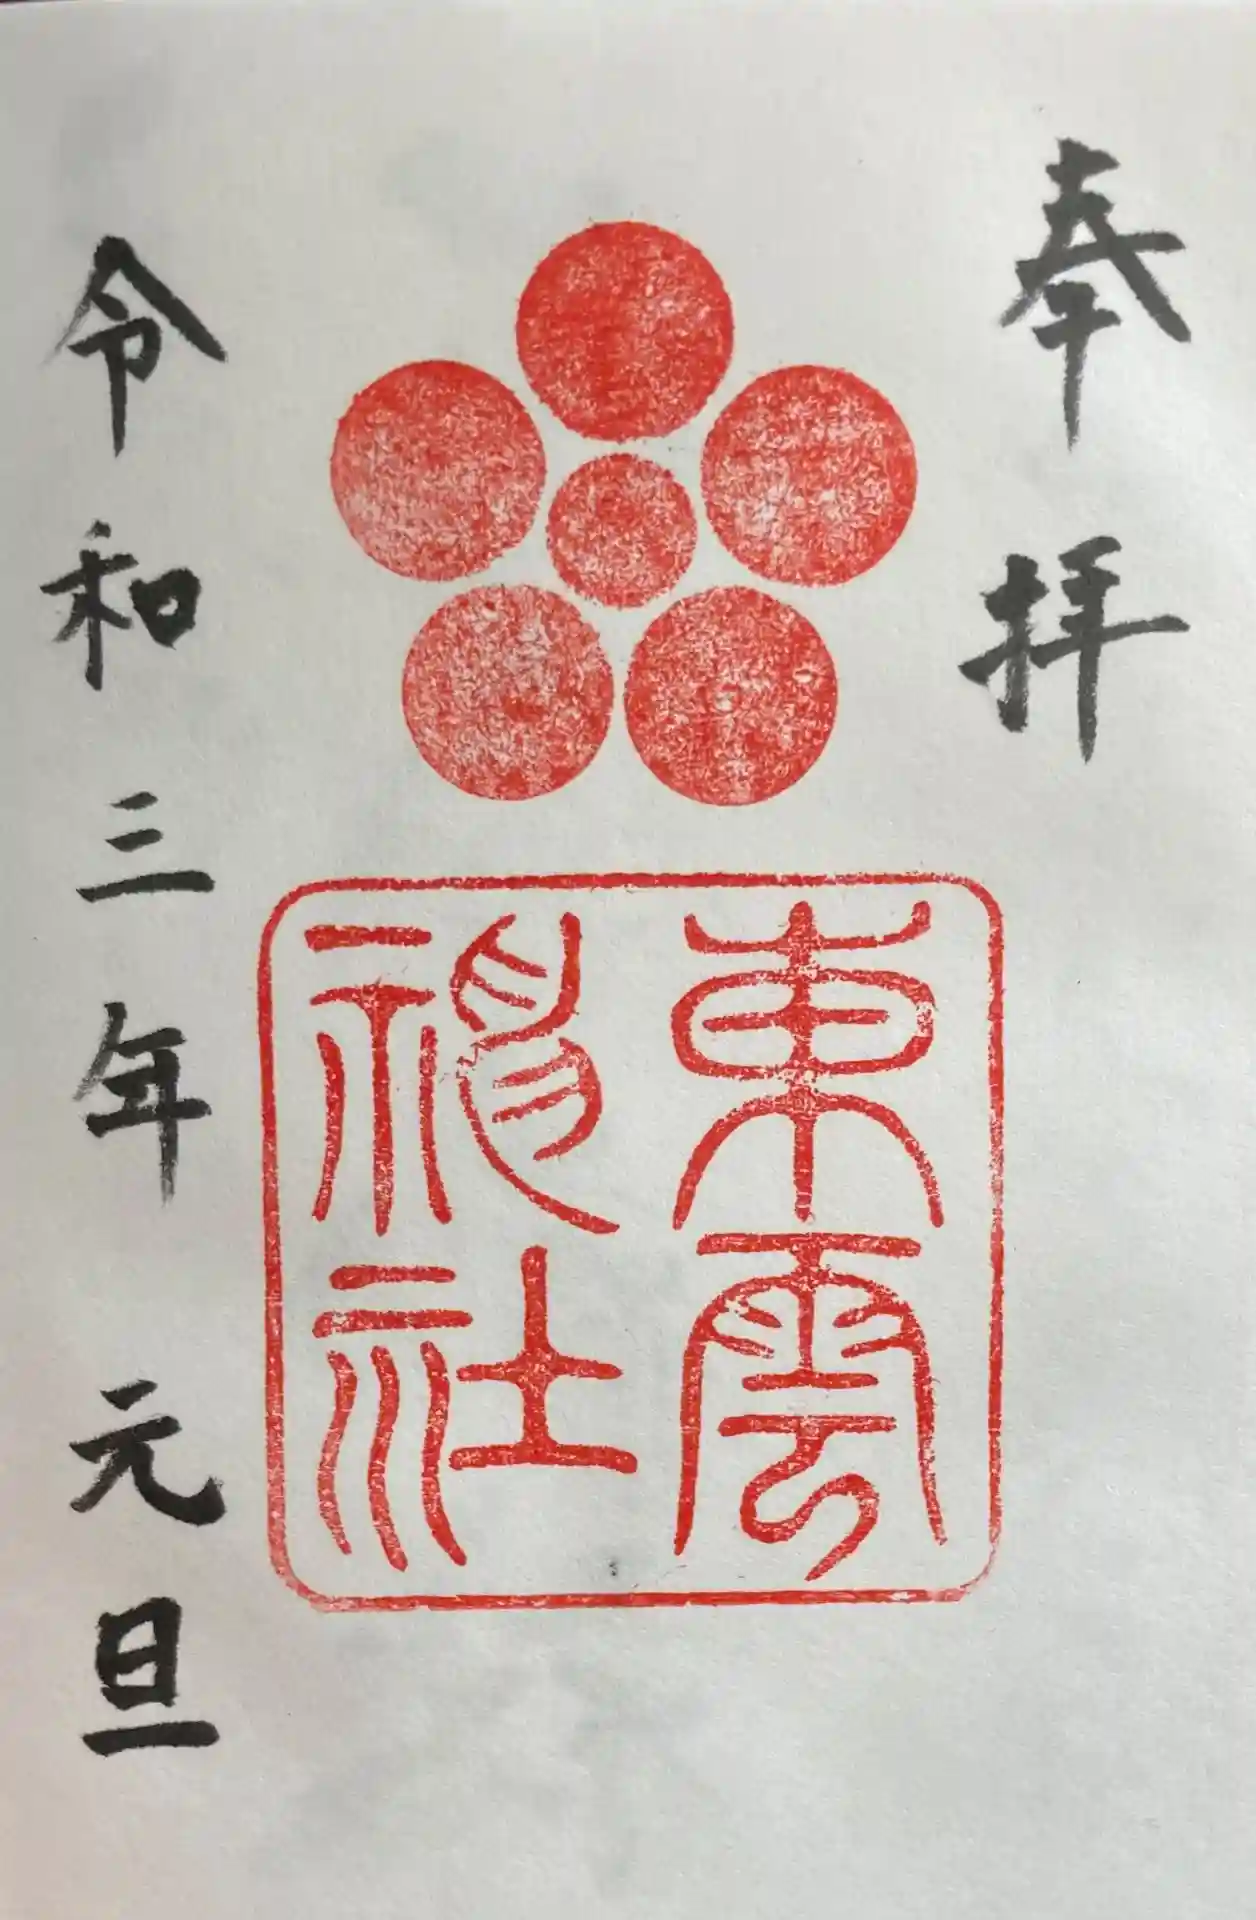 奉拝
東雲
神社
令和三年元旦